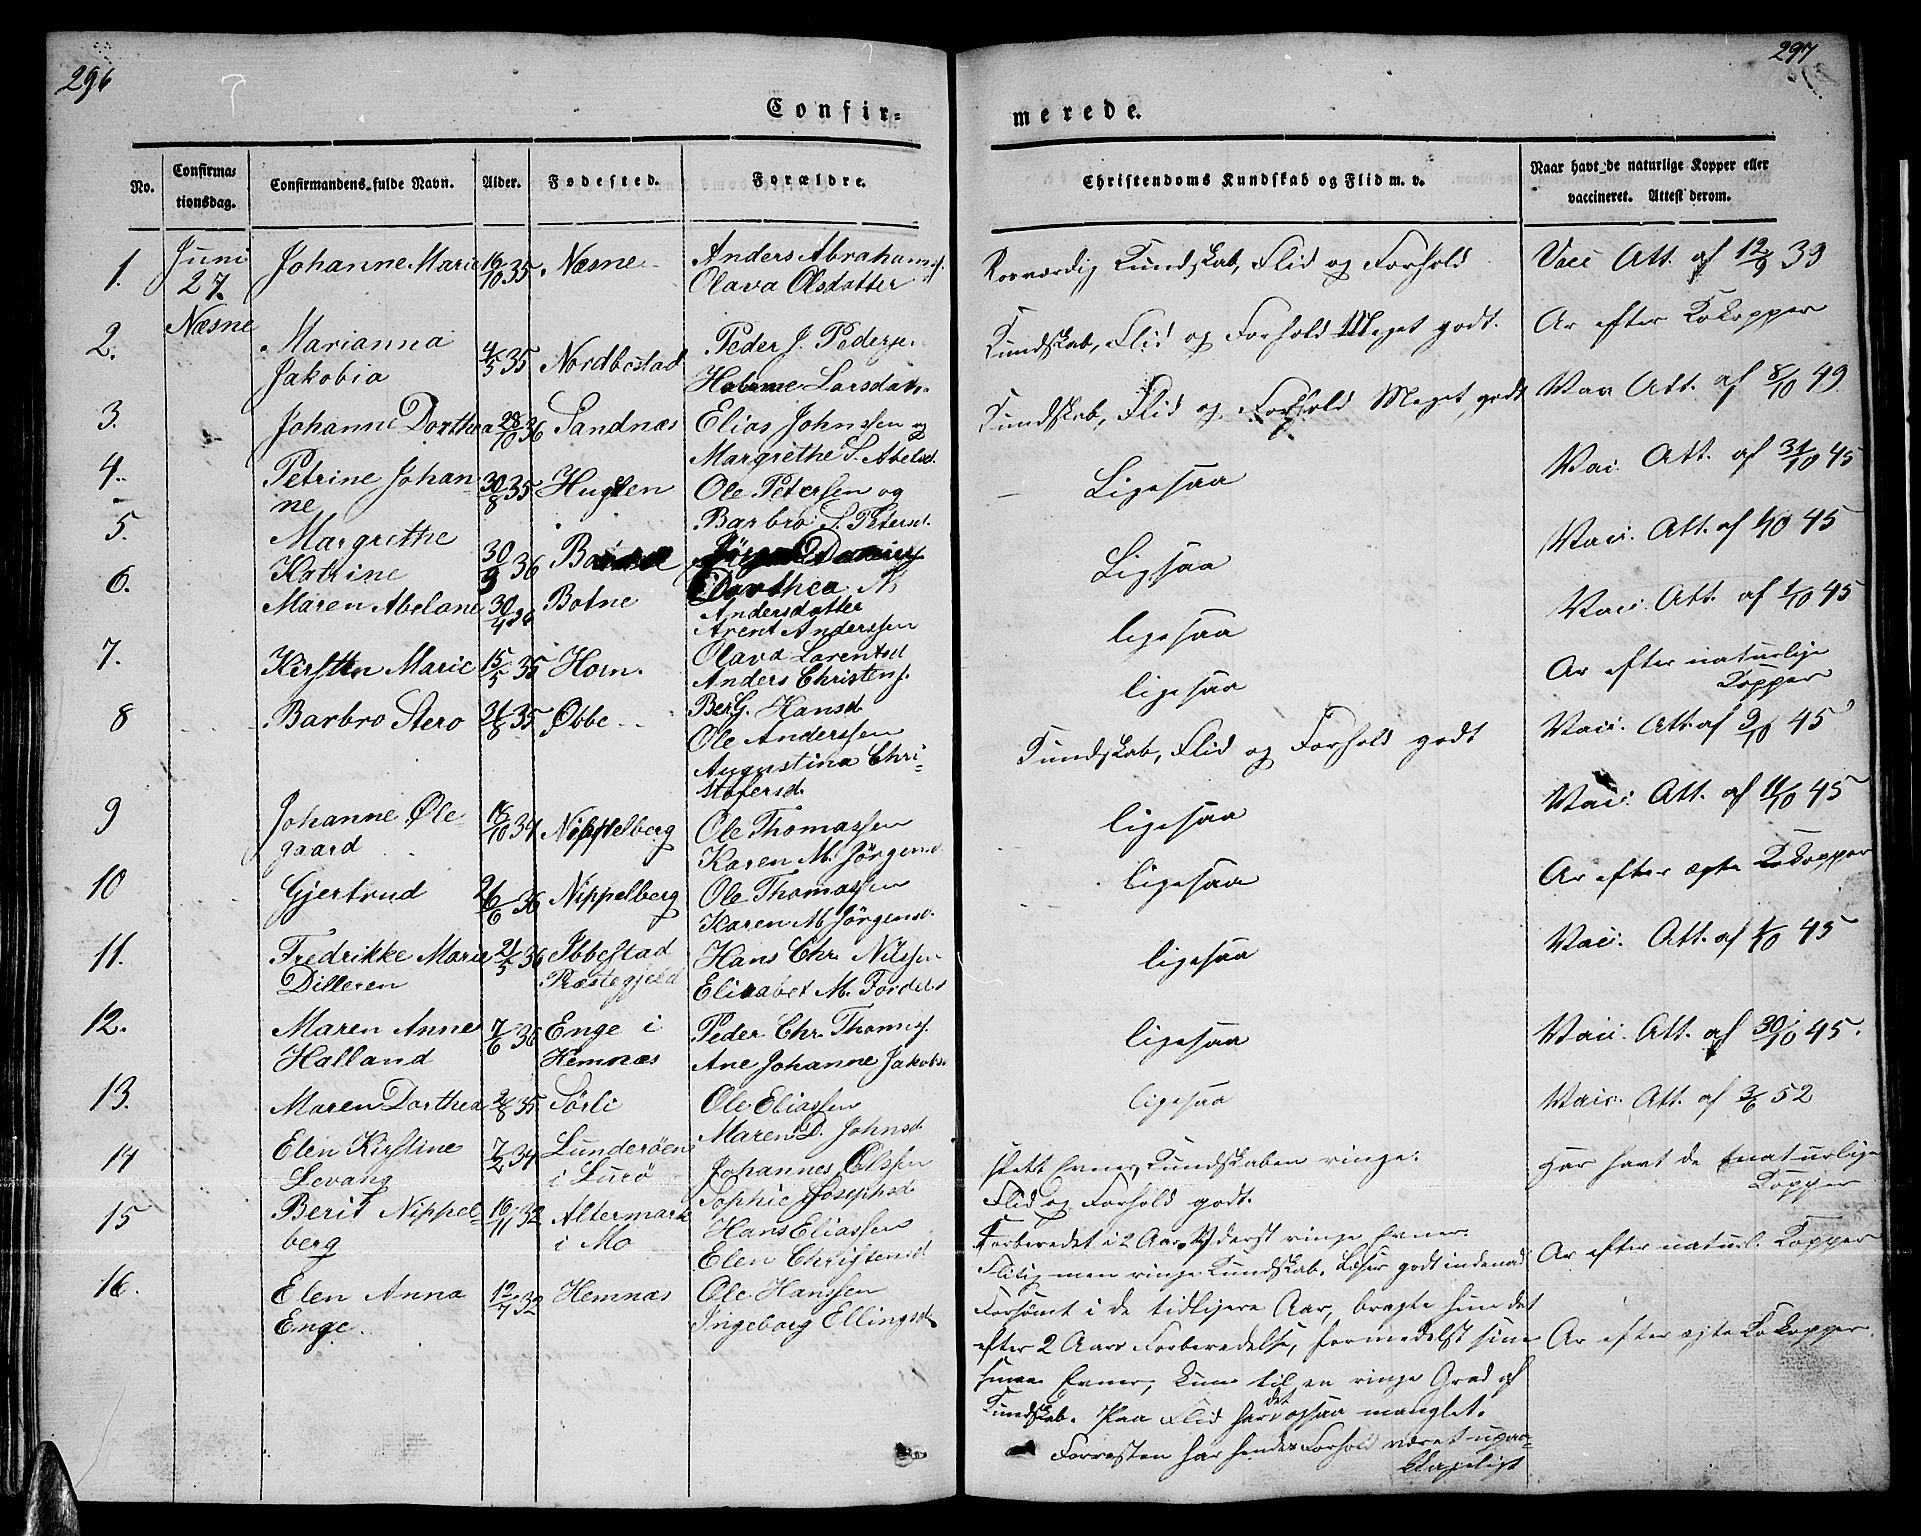 296
297
Confir-
merede.
No.
Confirma-
tionsdag.
Confirmandens fulde Navn.
Alder.
Fødested.
Forældre.
Christendoms Kundskab og Flid m. v.
Naar havt de naturlige Kopper eller
vaccineret. Attest derom.
1. Juni 27. Næsne Johanne Marie 16/10 35 Næsne
Anders Abrahams.
Olava Olsdatter
Rosværdig Kundskab, Flid og Forhold
Vacc Att. af 12/9 39
2. Marianna
Jakobia
4/5 35 Nordbostad
Peder J. Peders.
Larsdatt.
Kundskab, Flid og Forhold Meget godt.
Ar efter Kokopper
3. Johanne Dorthea 28/10 36 Sandnæs
Elias Johnssen og
Margrethe S. Abelsd.
Kundskab, Flid og Forhold Meget godt
Att. af 8/10 49
4. Petrine Johan-
ne
30/8 35 Huglen
Ole Petersen og
Barbro S. Petersd.
Ligesaa
Att. af 31/10 45
5. Margrethe
Katrine
30/3 36
Dorthea N.
Andersdatter
Ligesaa
Vacc. Att. af 1/10 45
6. Maren Abelane 30/4 36 Botne
Arent Anderssen
Olava Larentsd
ligesaa
Vacc. Att. af 1/10 45
7. Kirsten Marie 15/5 35 Horn.
Anders Christens.
Berg. Hansd.
ligesaa
Ar efter naturlige
Kopper
8 Barbro Stero 31/8 35 Øbbe
Ole Anderssen
Augustina Chri-
stofersd.
Kundskab, Flid og Forhold godt
Vacc. Att. af 9/10 45
9 Johanne Øle-
gaard
18/10 34 Nippelberg
Ole Thomassen
Karen M. Jörgensd.
ligesaa
Vacc. Att. af 11/10 45
10 Gjertrud 26/6 36 Nippelberg
Ole Thomassen
Karen M. Jörgensd.
ligesaa
Ar efter ægte Kokopper
11. Fredrikke Marie
Dilleren
21/5 36 Ibbestad
Præstegjeld
Hans Chr. Nilssen
Elisabet M.
ligesaa
Vacc. Att. af 1/10 45
12. Maren Anne
Halland
7/6 36 Enge i
Hemnæs
Peder Chr. Thomass.
Ane Johanne Jakobs.
ligesaa
Vacc. Att. af 30/10 45.
13. Maren Dorthea 2/8 35 Sörli
Ole Eliassen
Maren D. Johnsd
ligesaa
Vacc. Att. af 3/6 52
14 Elen Kirstine
Levang
7/2 34 Lunderöen
i Lurö
Johannes Olssen
Sophie Josephsd
slett Evner, Kundskaben ringe.
Flid og Forhold godt.
Har havt de naturlige
Kopper
15 Berit Nippel-
berg
16/11 32 Altermark
i Mo
Hans Eliassen
Elen Christensd
Forberedet i 2 Aar. Yderst ringe Evner.
Flitig men ringe Kundskab. Læser godt indenad
Ar efter naturl. Kopper
16. Elen Anna
Enge.
12/7 32 Hemnæs
Ole Hanssen
Ingeborg Ellingsd.
Forsömt i de tidligere Aar, bragte hun det
efter 2 Aars Forberedelse, formedelst sine
Evner, kun til en ringe Grad af
Kundskab. Paa Flid har det ogsaa manglet.
Forresten har hendes Forhold været upaa-
klageligt
Ar efter ægte Kokopper.